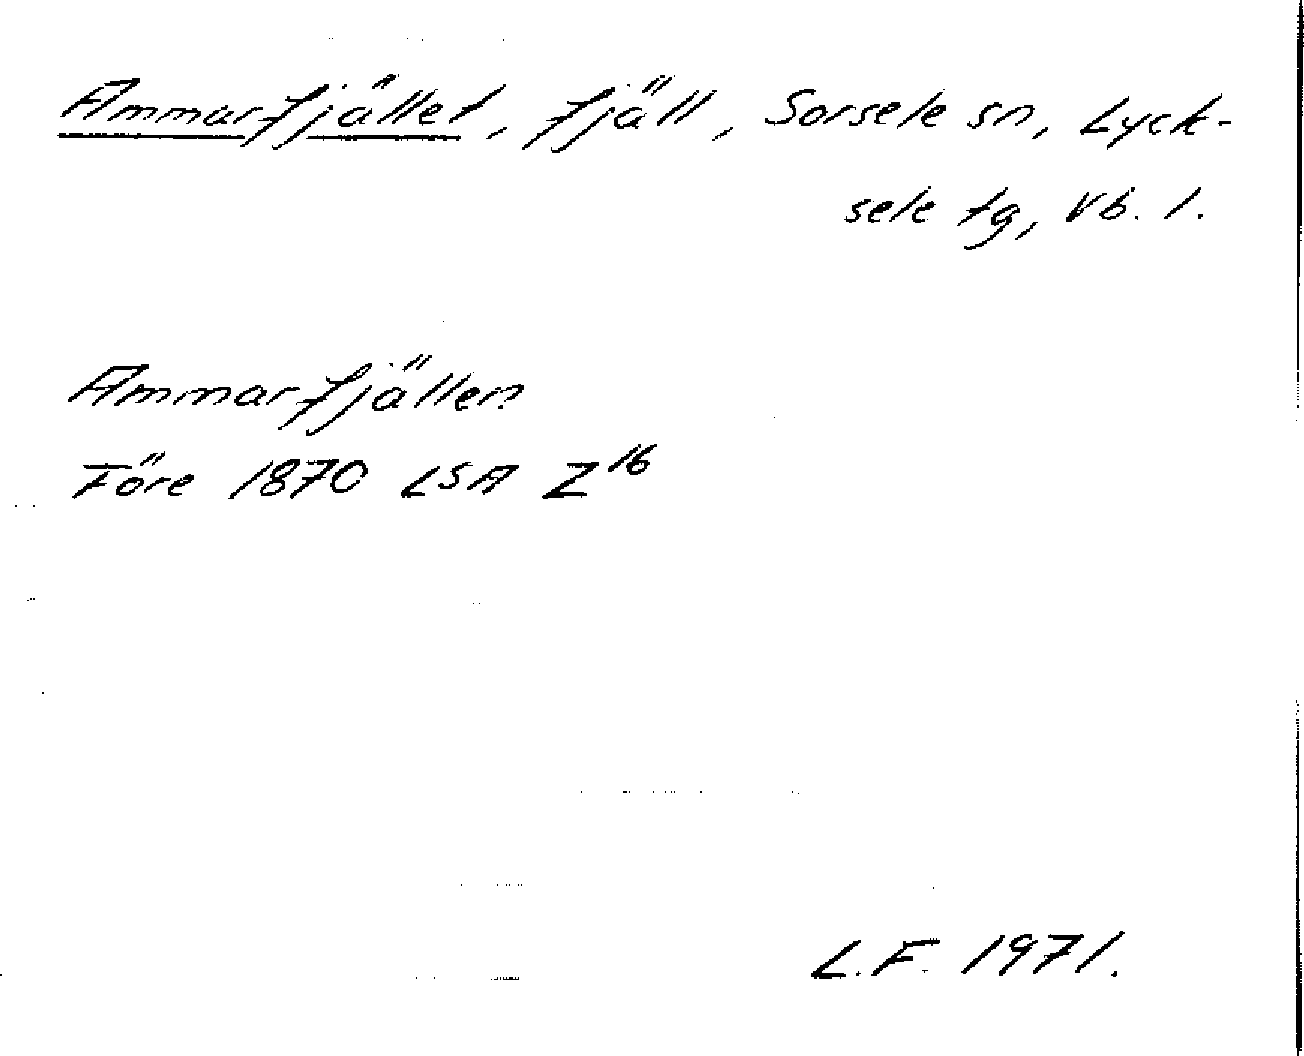 Ammarfjället, fjäll, Sorsele sn, Lyck-
sele tg, Vb. l.
Ammarfjällen
Före 1870 LSA Z16
L.F. 1971.